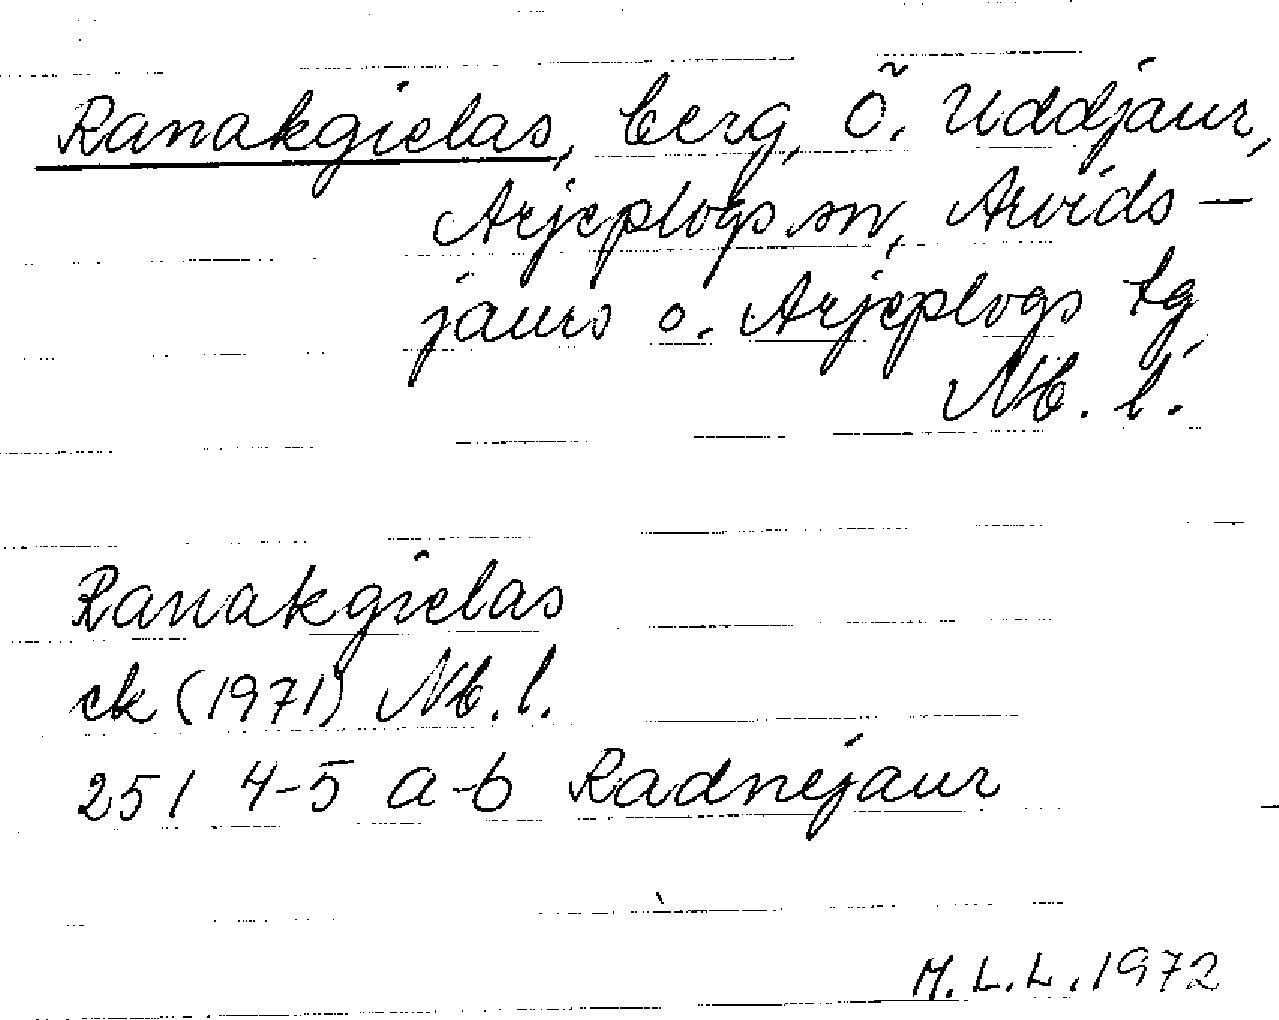 Ranakgielas, berg, Ö. Uddjaur,
Arjeplogs sn, Arvids-
jaurs o. Arjeplogs tg,
Nb. l.
Ranakgielas
ek (1971) Nb. l.
25 I 4-5 a-b Radnejaur
M.L.L. 1972